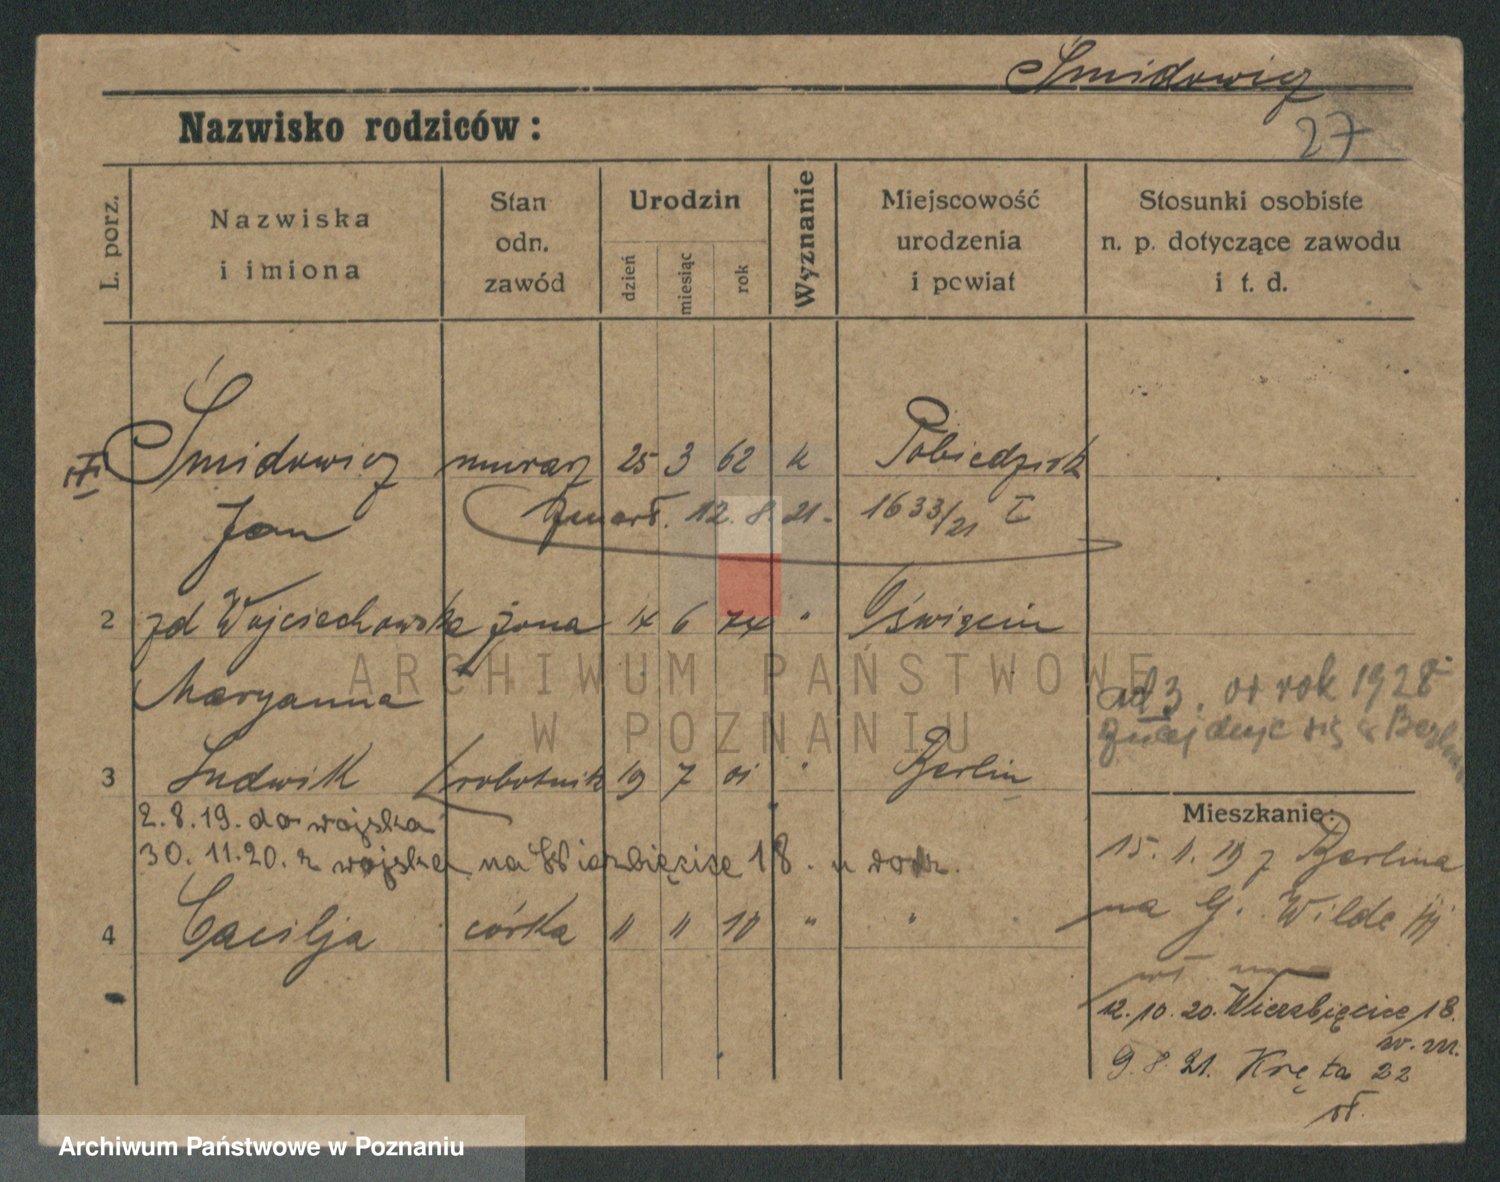 Śmidowicz
27
Nazwisko rodziców:
L. porz.
Nazwiska
i imiona
Stan
odn.
zawód
Urodzin
dzień
miesiąc
rok
Wyznanie
Miejscowość
urodzenia
i powiat
Stosunki osobiste
n. p. dotyczące zawodu
i t. d.
Śmidowicz murarz 25 3 62 k Pobiedzisk
Jan zmarł. 12. 8. 21- 1633/21 I
2 zd Wojciechowska żona 14 6 74 " Oświęcin
Maryanna
ad 3. rok 1928
znajduje się w
3 Ludwik robotnik 19 7 01 " Berlin
2.8.19. do wojska
30.11.20. z wojska na Wierzbięcice 18. u rodz.
4 Cacilja córka " " 10 " "
Mieszkanie:
15.1.19 z Berlina
na G. Wilde
12.10.20. Wierzbięcice 18.
w. m.
9.8.21. Kręta 22
ARCHIWUM PAŃSTWOWE
W POZNANIU
Archiwum Państwowe w Poznaniu